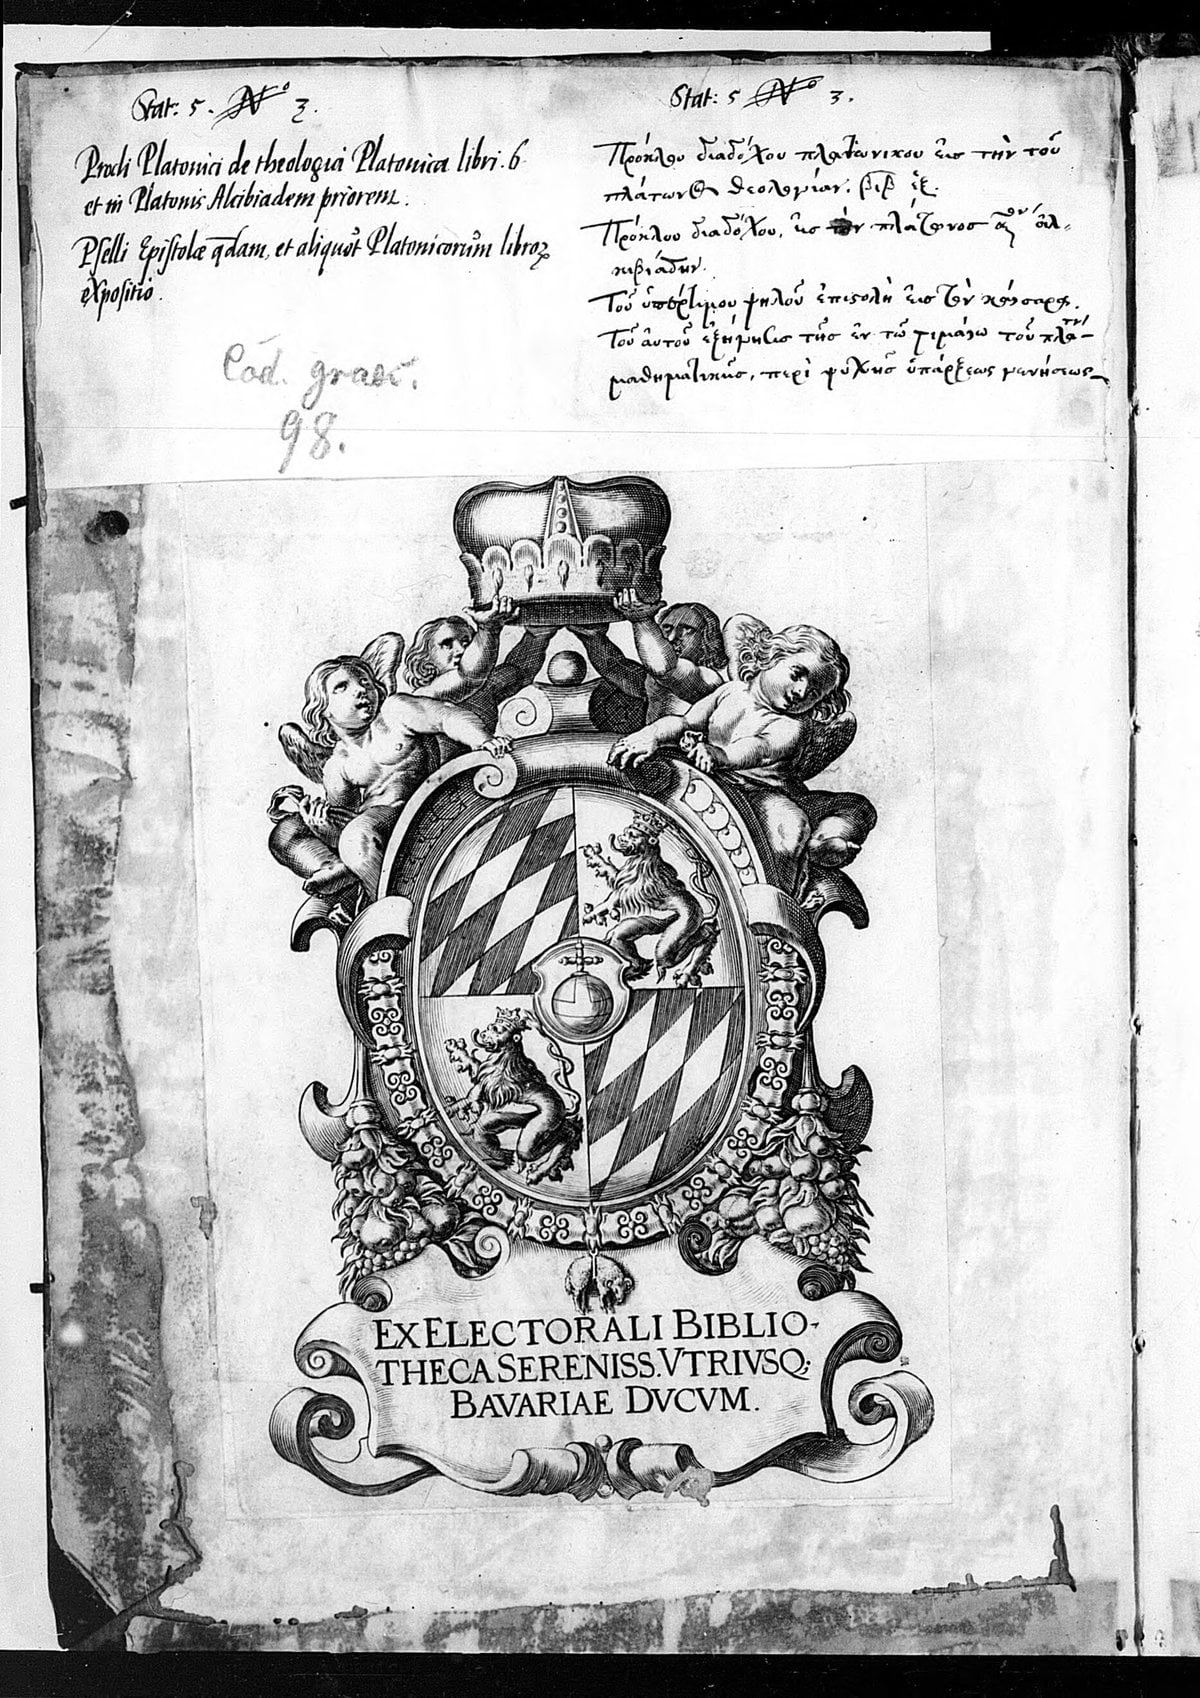 Stat: 5. No 3.
Procli Platonici de theologia Platonica libri. 6
et in Platonis Alcibiadem priorem.
Pselli Epistolæ q̃dam, et aliquot Platonicorum libroꝝ
expositio.
Stat: 5 No 3.
Πρόκλου διαδόχου πλατωνικου εἰς τὴν τοῦ
πλάτωνος θεολογίαν. βιβ ἓξ.
Πρόκλου διαδόχου, εἰς τὸν πλάτωνος αον ἀλ-
κιβιάδην.
Τοῦ ὑπερτίμου ψηλοῦ ἐπιστολὴ εἰς τὸν καίσαρα.
Τοῦ αὐτοῦ ἐξήγησις τῆς ἐν τῶ τιμαίω τοῦ πλα-
μαθηματικῆς, περὶ ψυχῆς ὑπάρξεως γενήσεως
Cod. graec.
98.
EX ELECTORALI BIBLIO-
THECA SERENISS. VTRIVSQ;
BAVARIAE DVCVM.